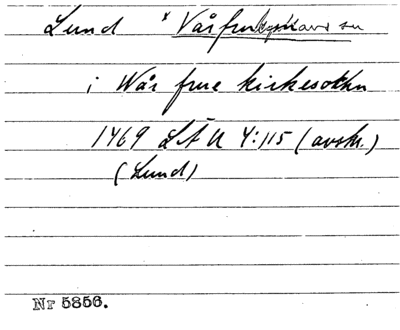 Lund * Vårfrukyrkans sn
i Wår frue kirkesokn
1469 LÄU 4:115 (avskr.)
(Lund)
Nr 5856.